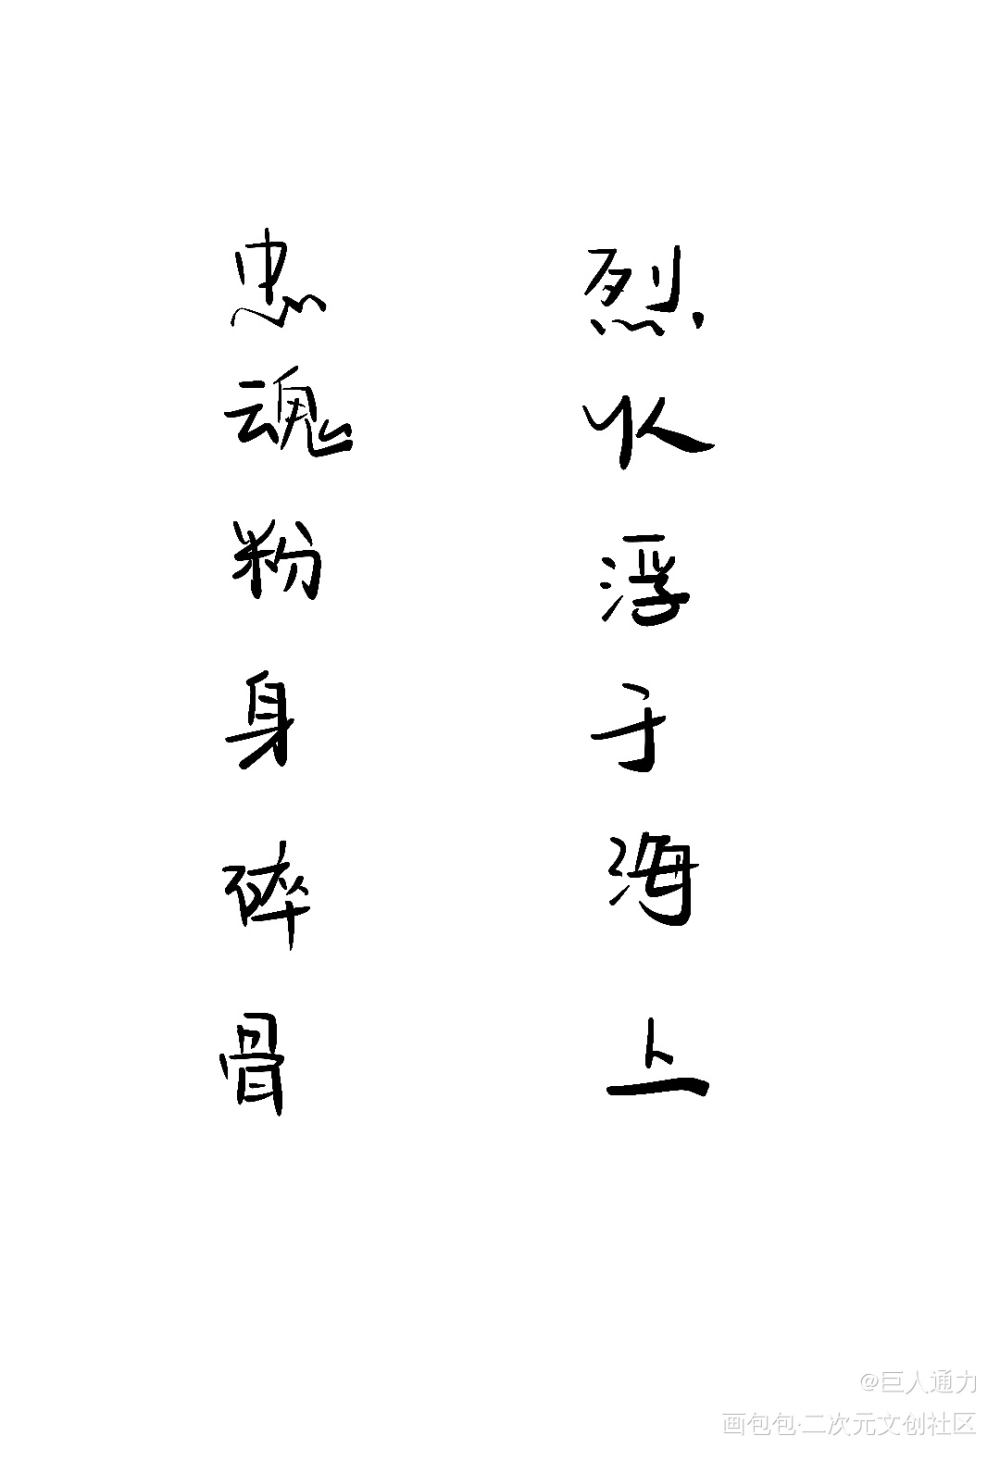 烈火浮于海上
忠魂粉身碎骨
@巨人通力
画包包·二次元文创社区